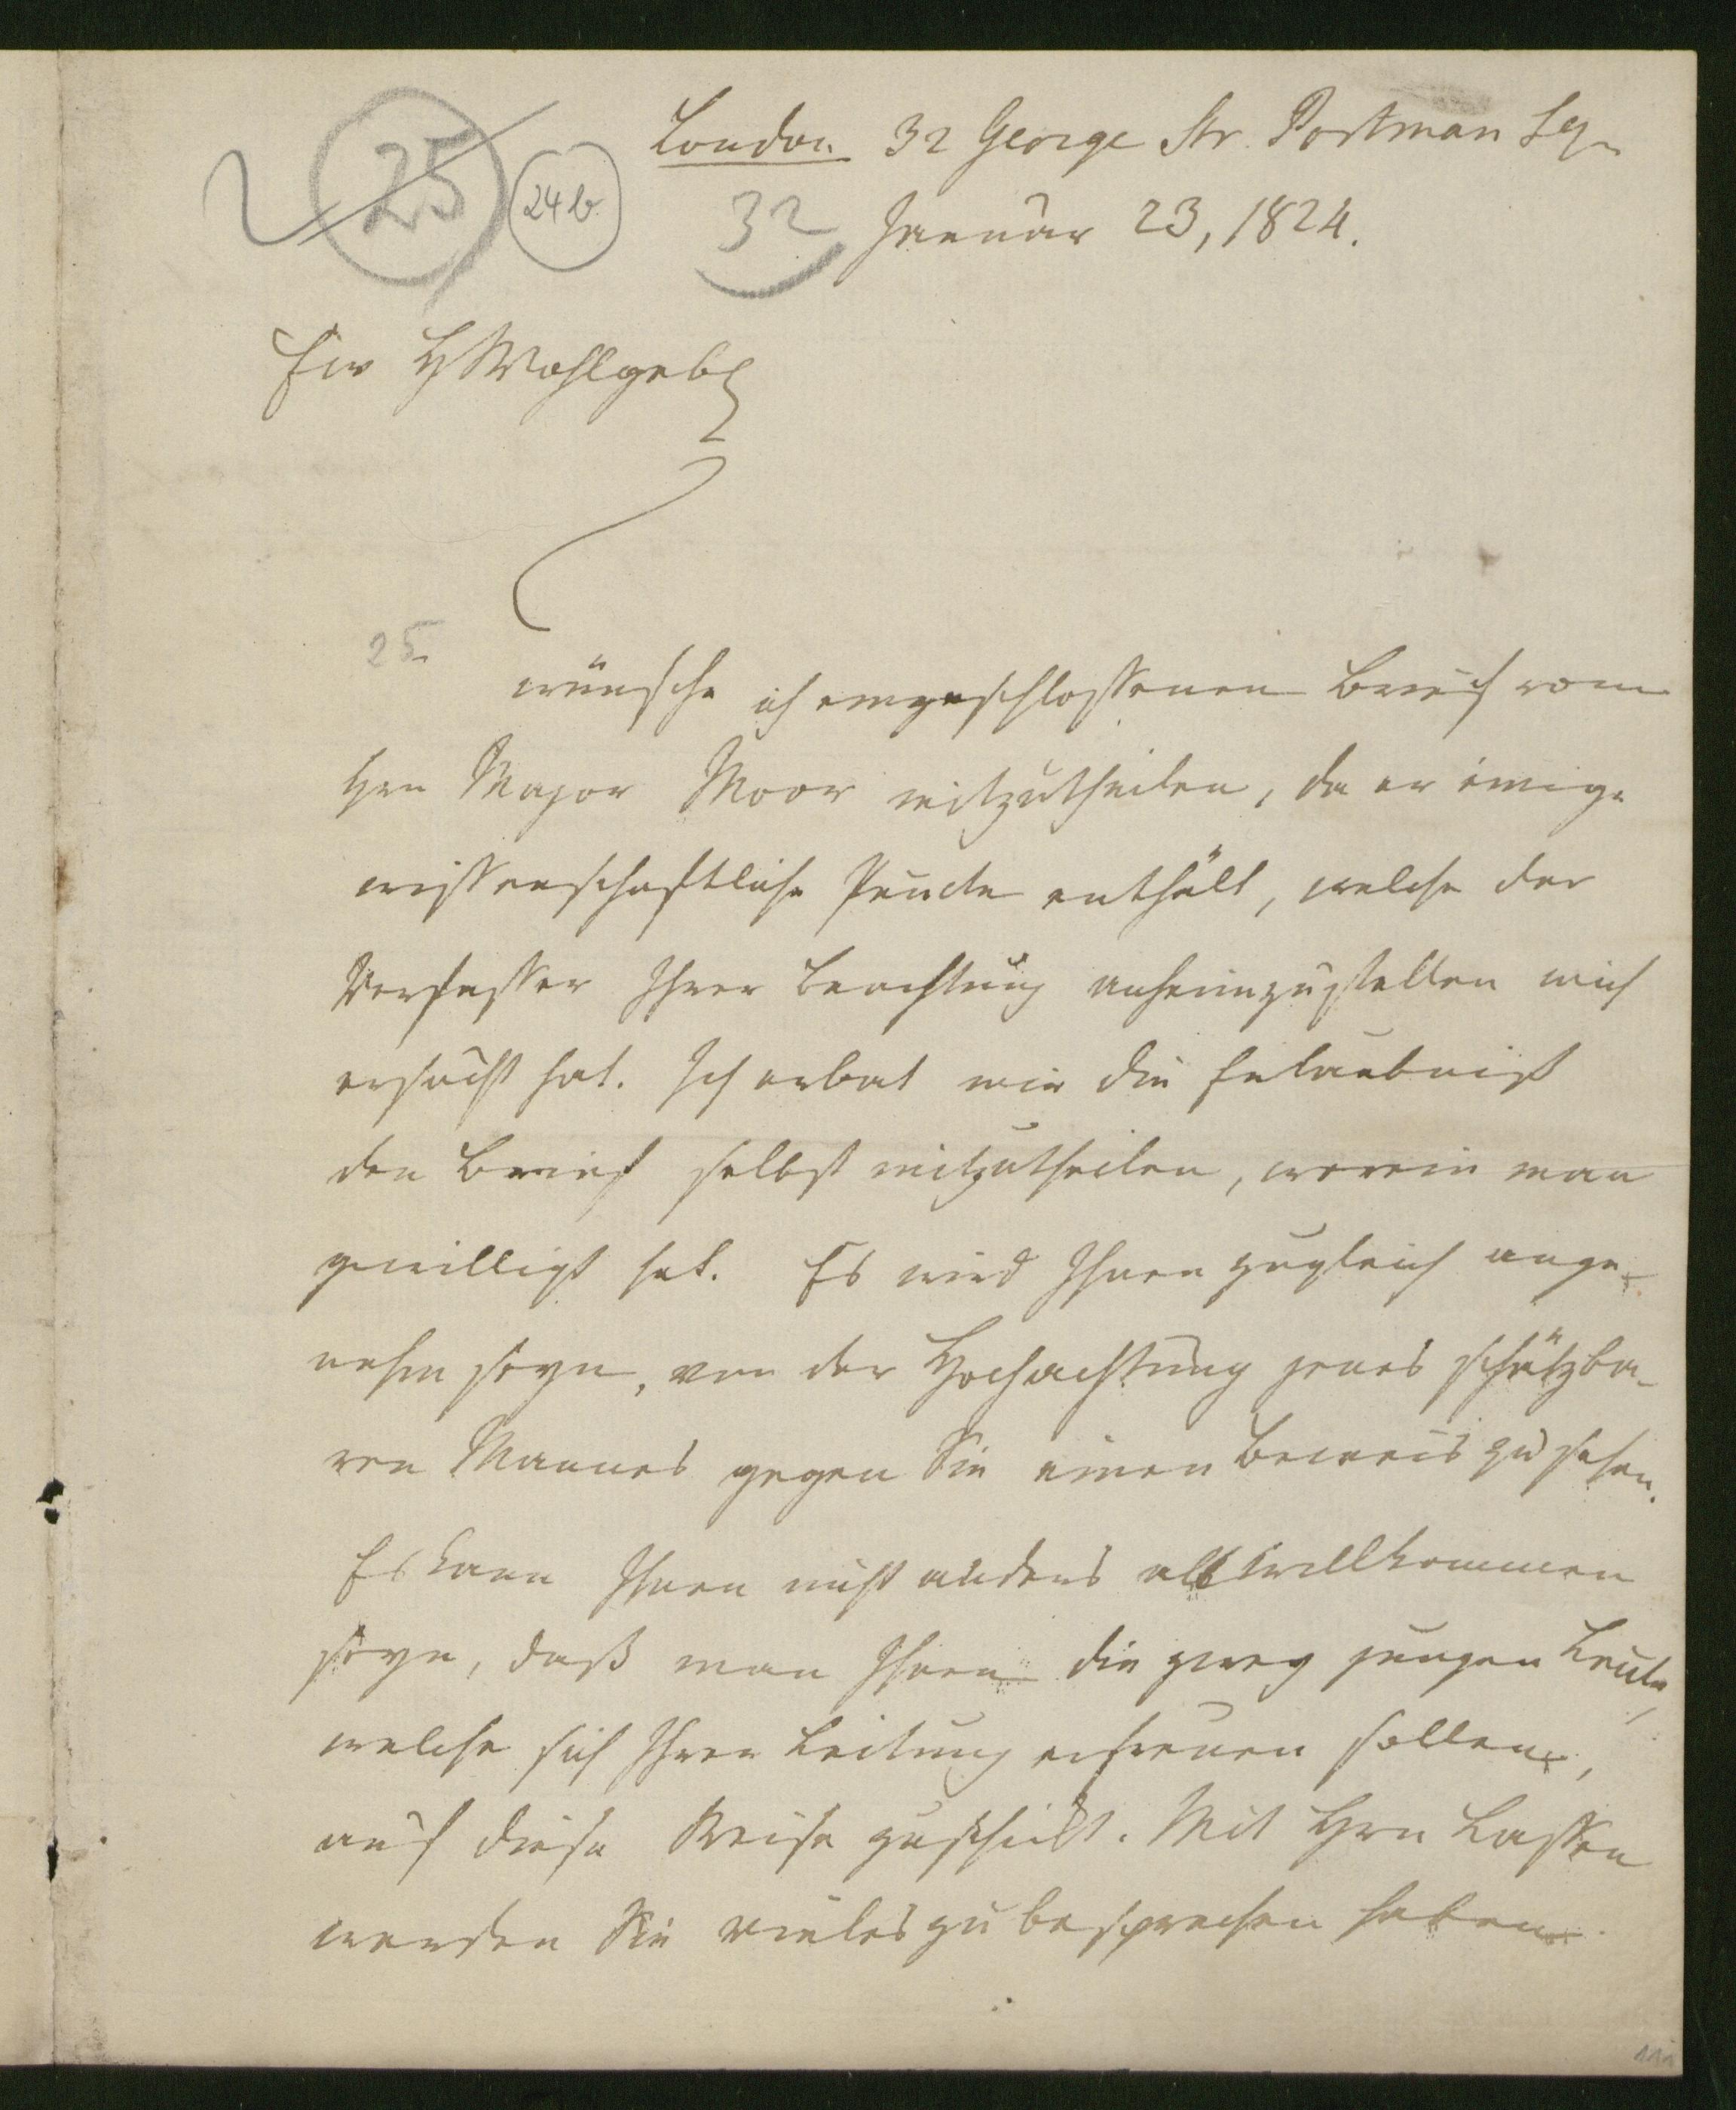 London 32 George Str. Portman Sq.
25 24b. 32 Januar 23, 1824.
Ew HWohlgeb
25
wünsche ich eingeschlossenen Brief vom
Hrn Major Moor mitzutheilen, da er einige
wissenschaftliche Puncte enthält, welche der
Verfasser Ihrer Beachtung anheimzustellen mich
ersucht hat. Ich erbat mir die Erlaubniß
den Brief selbst mitzutheilen, worein man
gewilligt hat. Es wird Ihnen zugleich ange-
nehm seyn, von der Hochachtung jenes schätzba-
ren Mannes gegen Sie einen Beweis zu sehen.
Es kann Ihnen nicht anders als willkommen
seyn, daß man Ihnen die zwey jungen Leute,
welche sich Ihrer Leitung erfreuen sollen,
auf diese Weise zuschickt. Mit Hrn Lassen
werden Sie vieles zu besprechen haben.
111